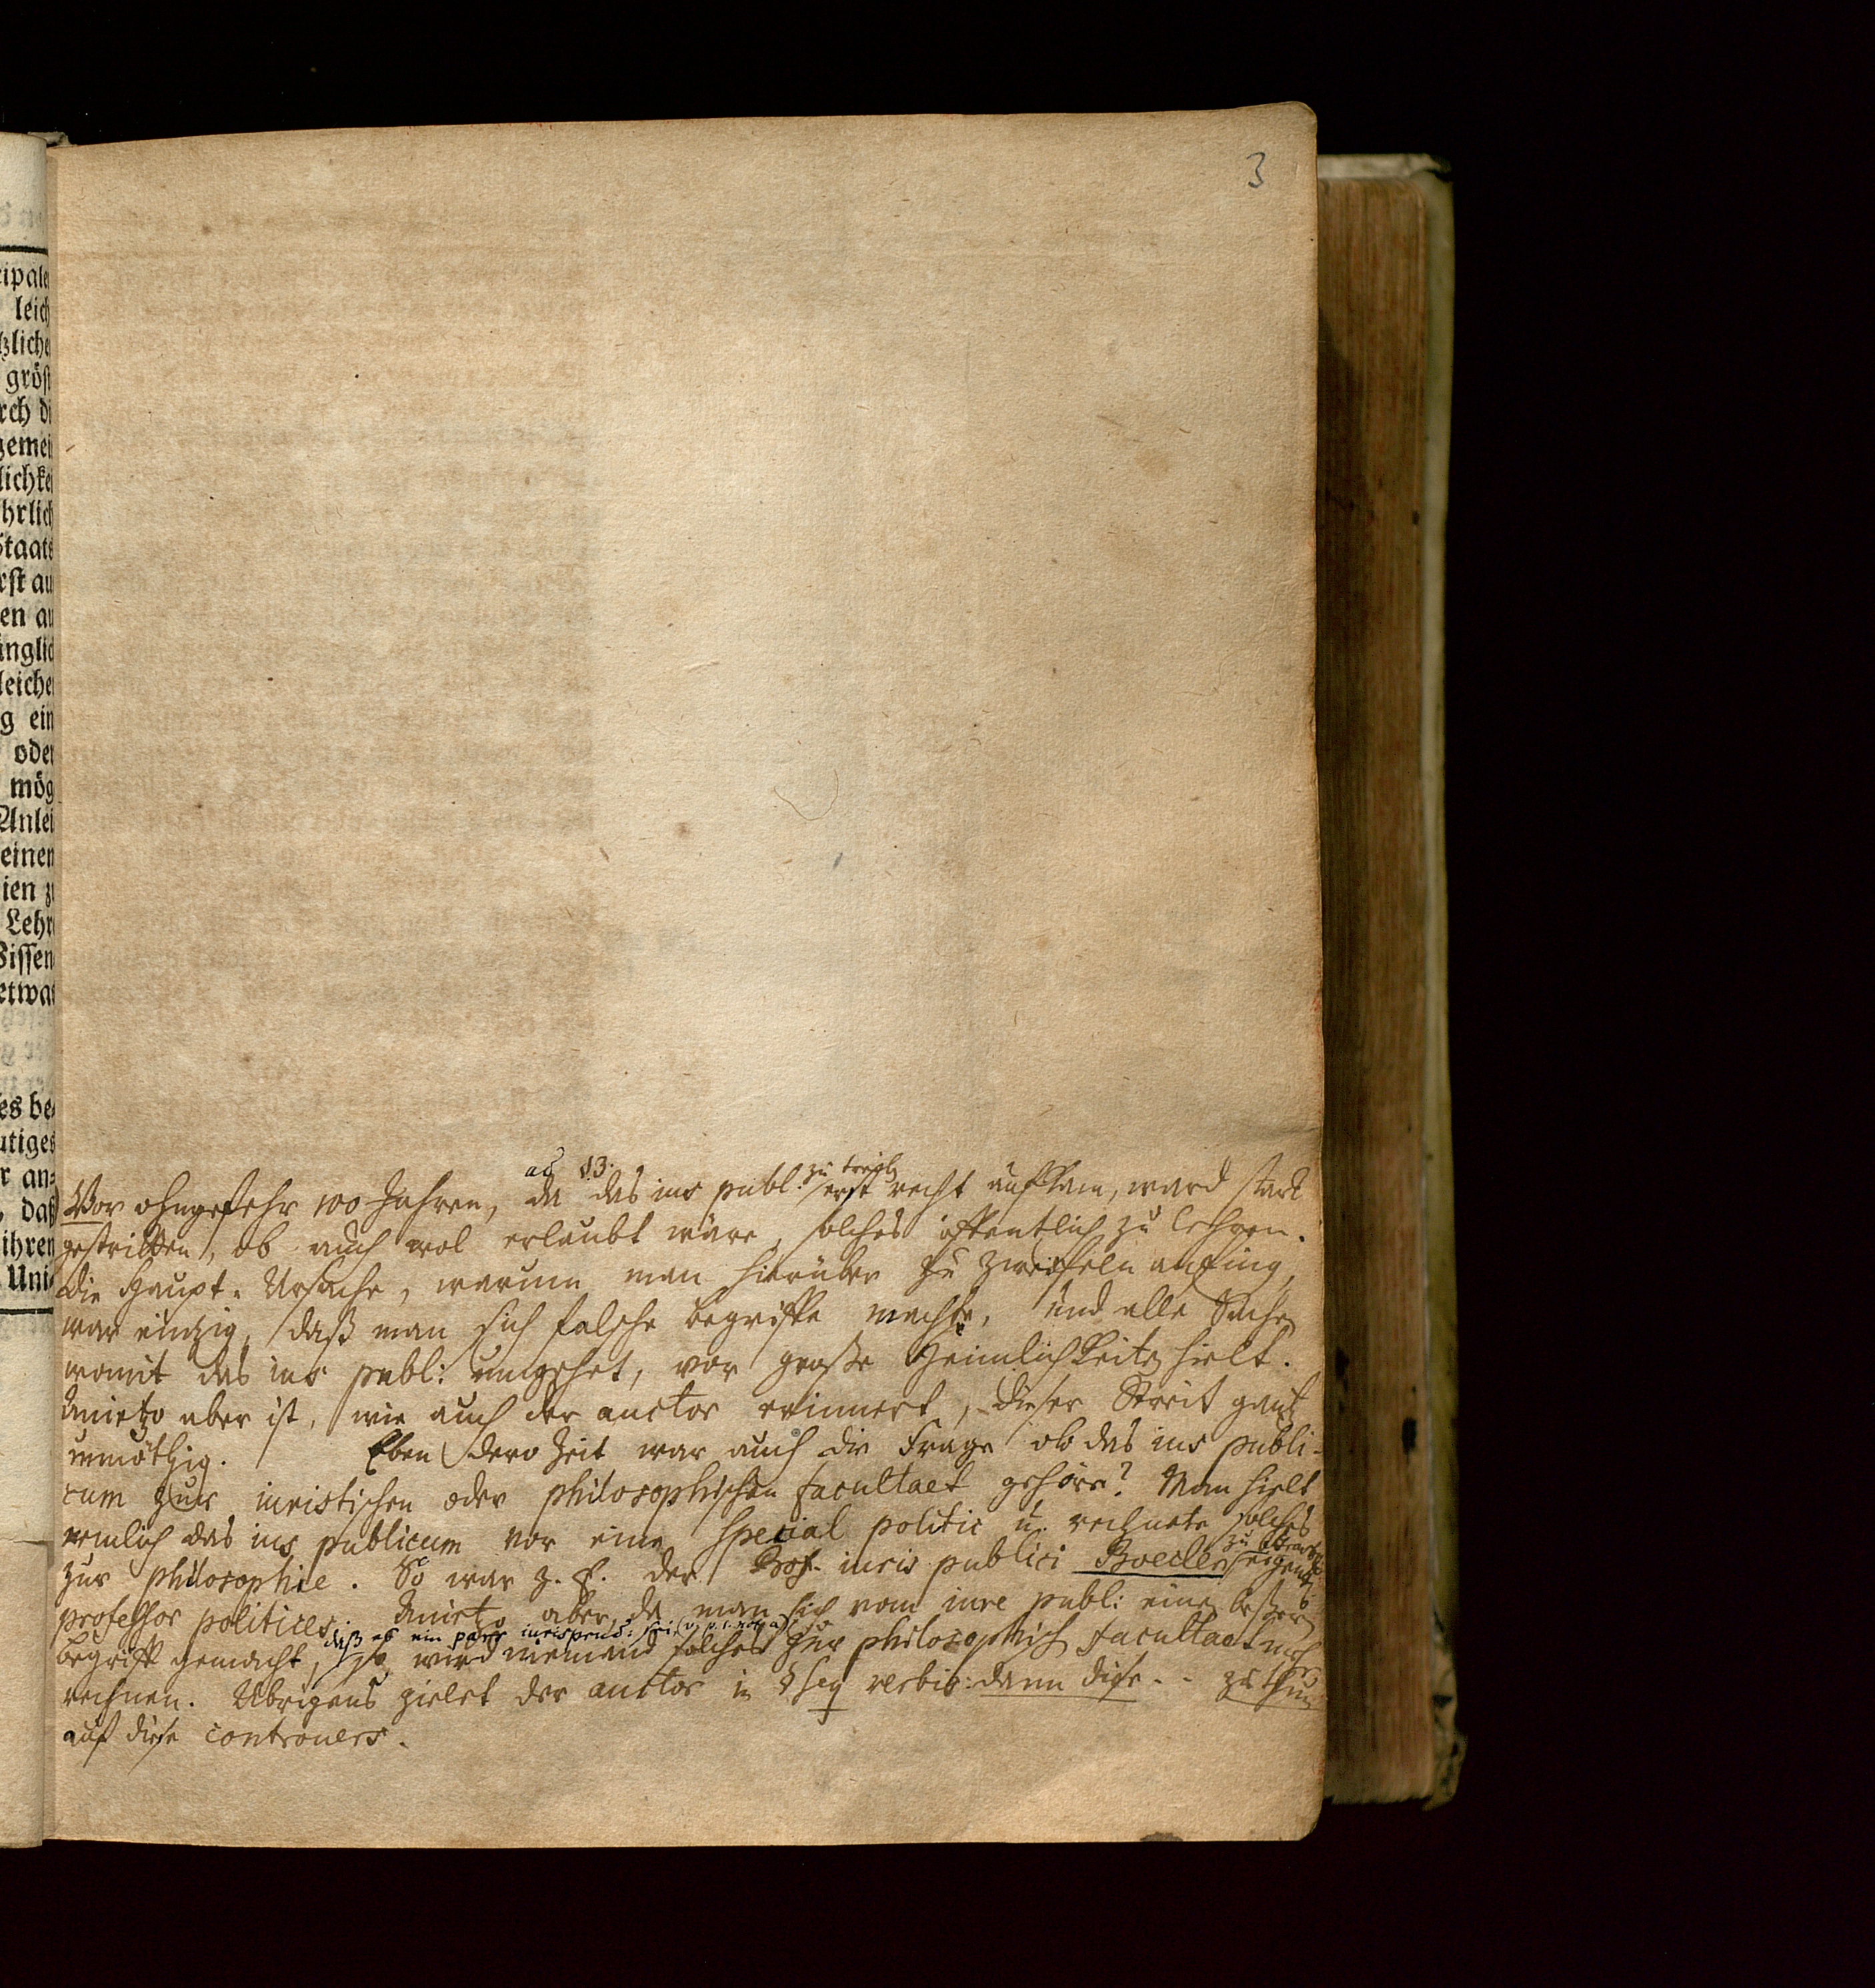 3
cipale
leich
tzliche
gröst
rch di
gemei
lichke
hrlich
Staats
rst au
en au
änglic
leiche
g ein
oder
mög
Anlei
einen
ien zu
Lehr
Wissen
etwas
es be-
utiges
r an-
, daß
ihren
Uni-
ad §3.
Vor ohngefehr 100 Jahren, da das ius publ. erst recht aufkam, ward stark
gestritten, ob auch wol erlaubt wäre, solches öffentlich zu lehren.
Die Haupt-Ursache, warum man hierüber zu zweifeln anfing,
war einzig, daß man sich falsche begriffe machte, und alle Sachen
womit das ius publ: umgehet, vor große Heimlichkeiten hielt.
Anietzo aber ist, wie auch der auctor erinnert, dieser Streit gantz
unnöthig. Eben dero Zeit war auch die Frage ob das ius publi-
cum zur iuristischen oder philosophischen facultaet gehöre? Man hielt
nemlich das ius publicum vor eine special politic u. rechnete solches
zur philosophie. So war z. E. der Prof. iuris publici Boecler zu eigentl.
professor politices. Anietzo aber, da man sich vom iure publ: einen beßern
daß es ein pars iurisprud: sei (v. p. 1. not. a)
begriff gemacht, so wird niemand solches zur philosophisch facultaet mehr
rechnen. Übrigens zielet der auctor in § seq verbis: dann diese - - zu thun
auf diese controvers.